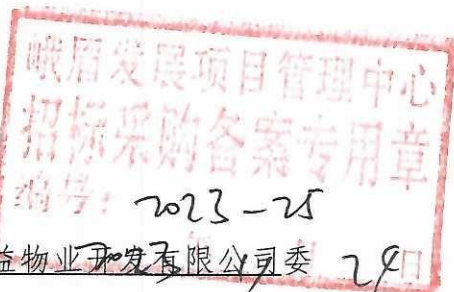 峨眉发展项目管理中心
招标采购备案专用章
编号: 2023-25
益物业开发有限公司委 24日